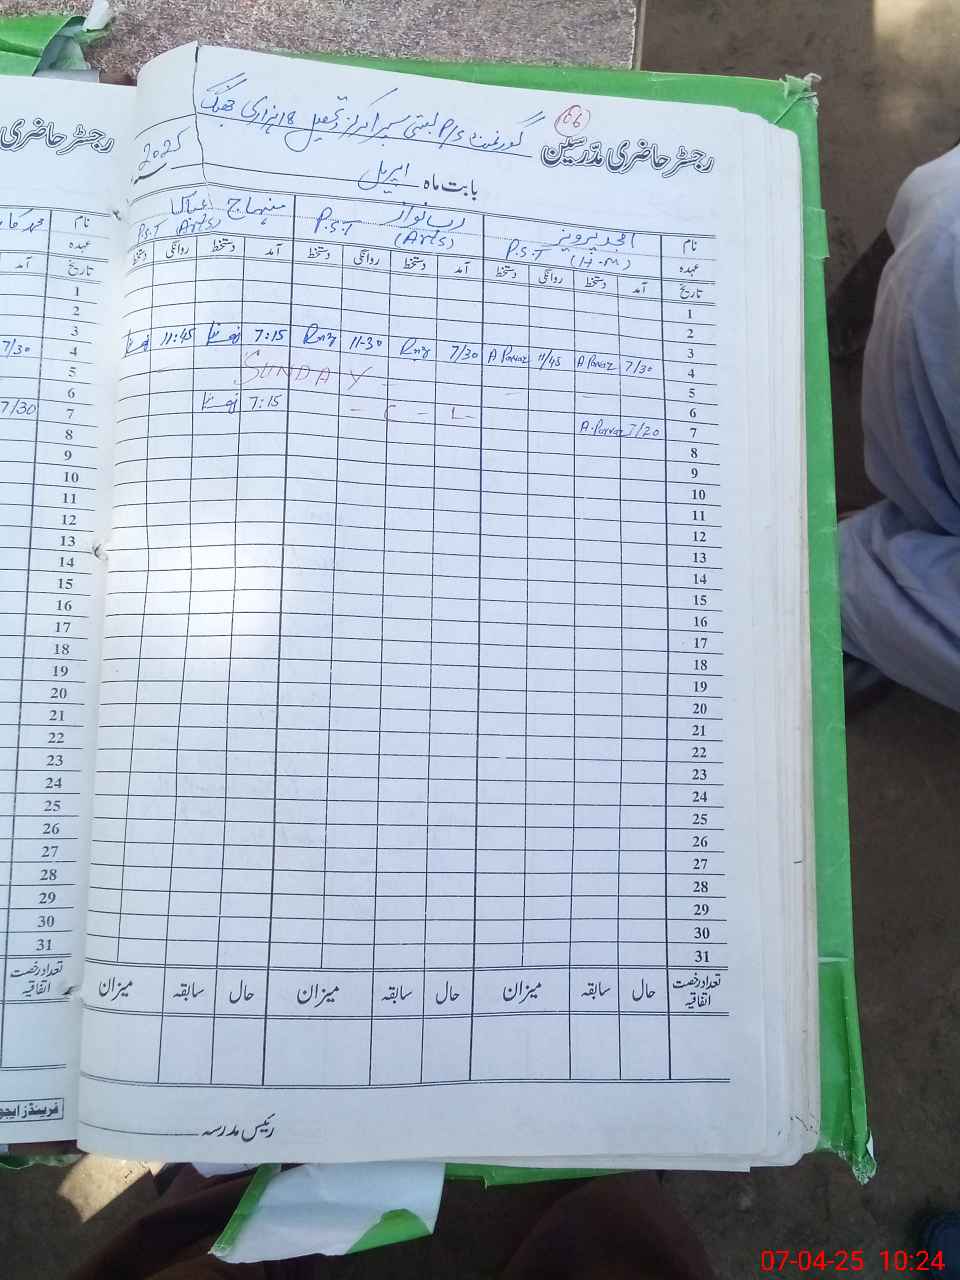 66
رجسٹر حاضری مدّرسین گورنمنٹ P/S بستی تحصیل 18 ہزاری جھنگ
بابت ماہ اپریل 2025
نام امجد پرویز رب نواز منہاج
عہدہ P.S.T (H.M) P.S.T (Arts) P.S.T (Arts)
تاریخ آمد دستخط روانگی دستخط آمد دستخط روانگی دستخط آمد دستخط روانگی دستخط
1
2
3
4 7/30 A Parvaz 11/45 A Parvaz 7/30 Rnz 11-30 Rnz 7:15 11:45
5
6 SUNDAY
7 7/20 A.Parvaz - C - L - 7:15
8
9
10
11
12
13
14
15
16
17
18
19
20
21
22
23
24
25
26
27
28
29
30
31
تعداد رخصت اتفاقیہ حال سابقہ میزان حال سابقہ میزان حال سابقہ میزان
رئیس مدرسہ
رجسٹر حاضری
نام
عہدہ
تاریخ آمد
1
2
3
4 7/30
5
6
7 7/30
8
9
10
11
12
13
14
15
16
17
18
19
20
21
22
23
24
25
26
27
28
29
30
31
تعداد رخصت اتفاقیہ
فرینڈز ایجو
07-04-25 10:24